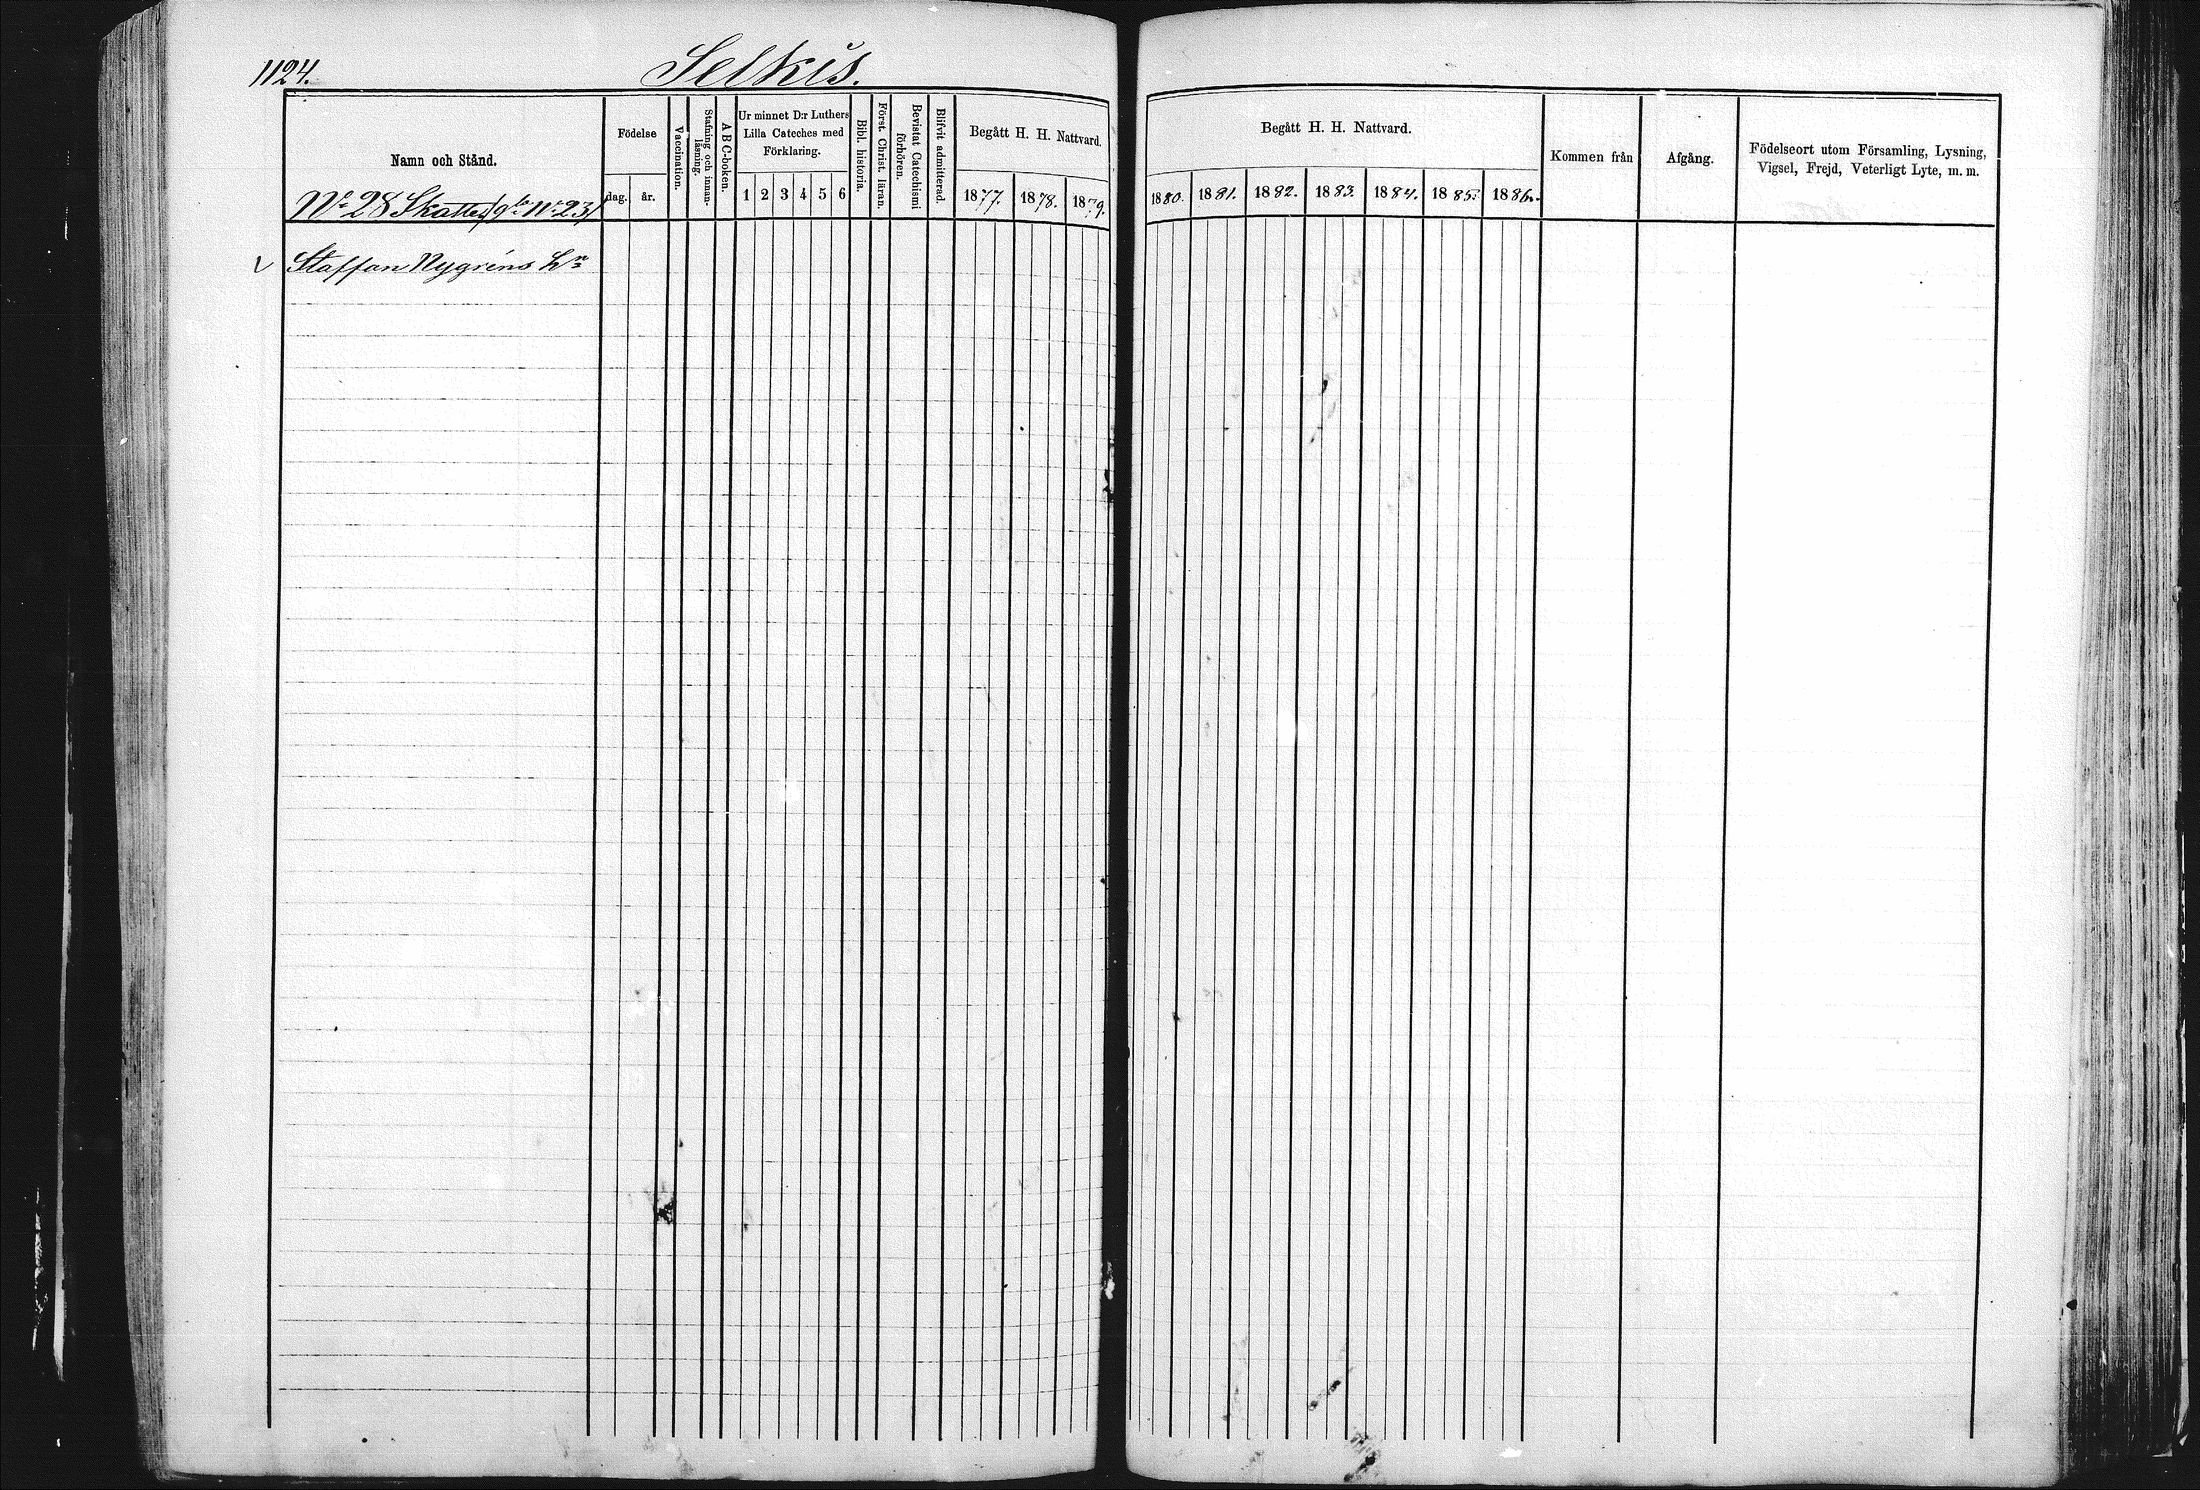 1124.
Selkis.
Namn och Stånd.
Födelse
dag. år.
Vaccination.
Stafning och innanläsning.
A B C-boken.
Ur minnet D:r Luthers
Lilla Cateches med
Förklaring.
1 2 3 4 5 6
Bibl. historia.
Först. Christ. läran.
Bevistat Catechismi
förhören.
Blifvit admitterad.
Begått H. H. Nattvard.
1877. 1878. 1879.
Begått H. H. Nattvard.
1880. 1881. 1882. 1883. 1884. 1885. 1886.
Kommen från
Afgång.
Födelseort utom Församling, Lysning,
Vigsel, Frejd, Veterligt Lyte, m. m.
No 28 Skattes No 23
Staffan Nygréns